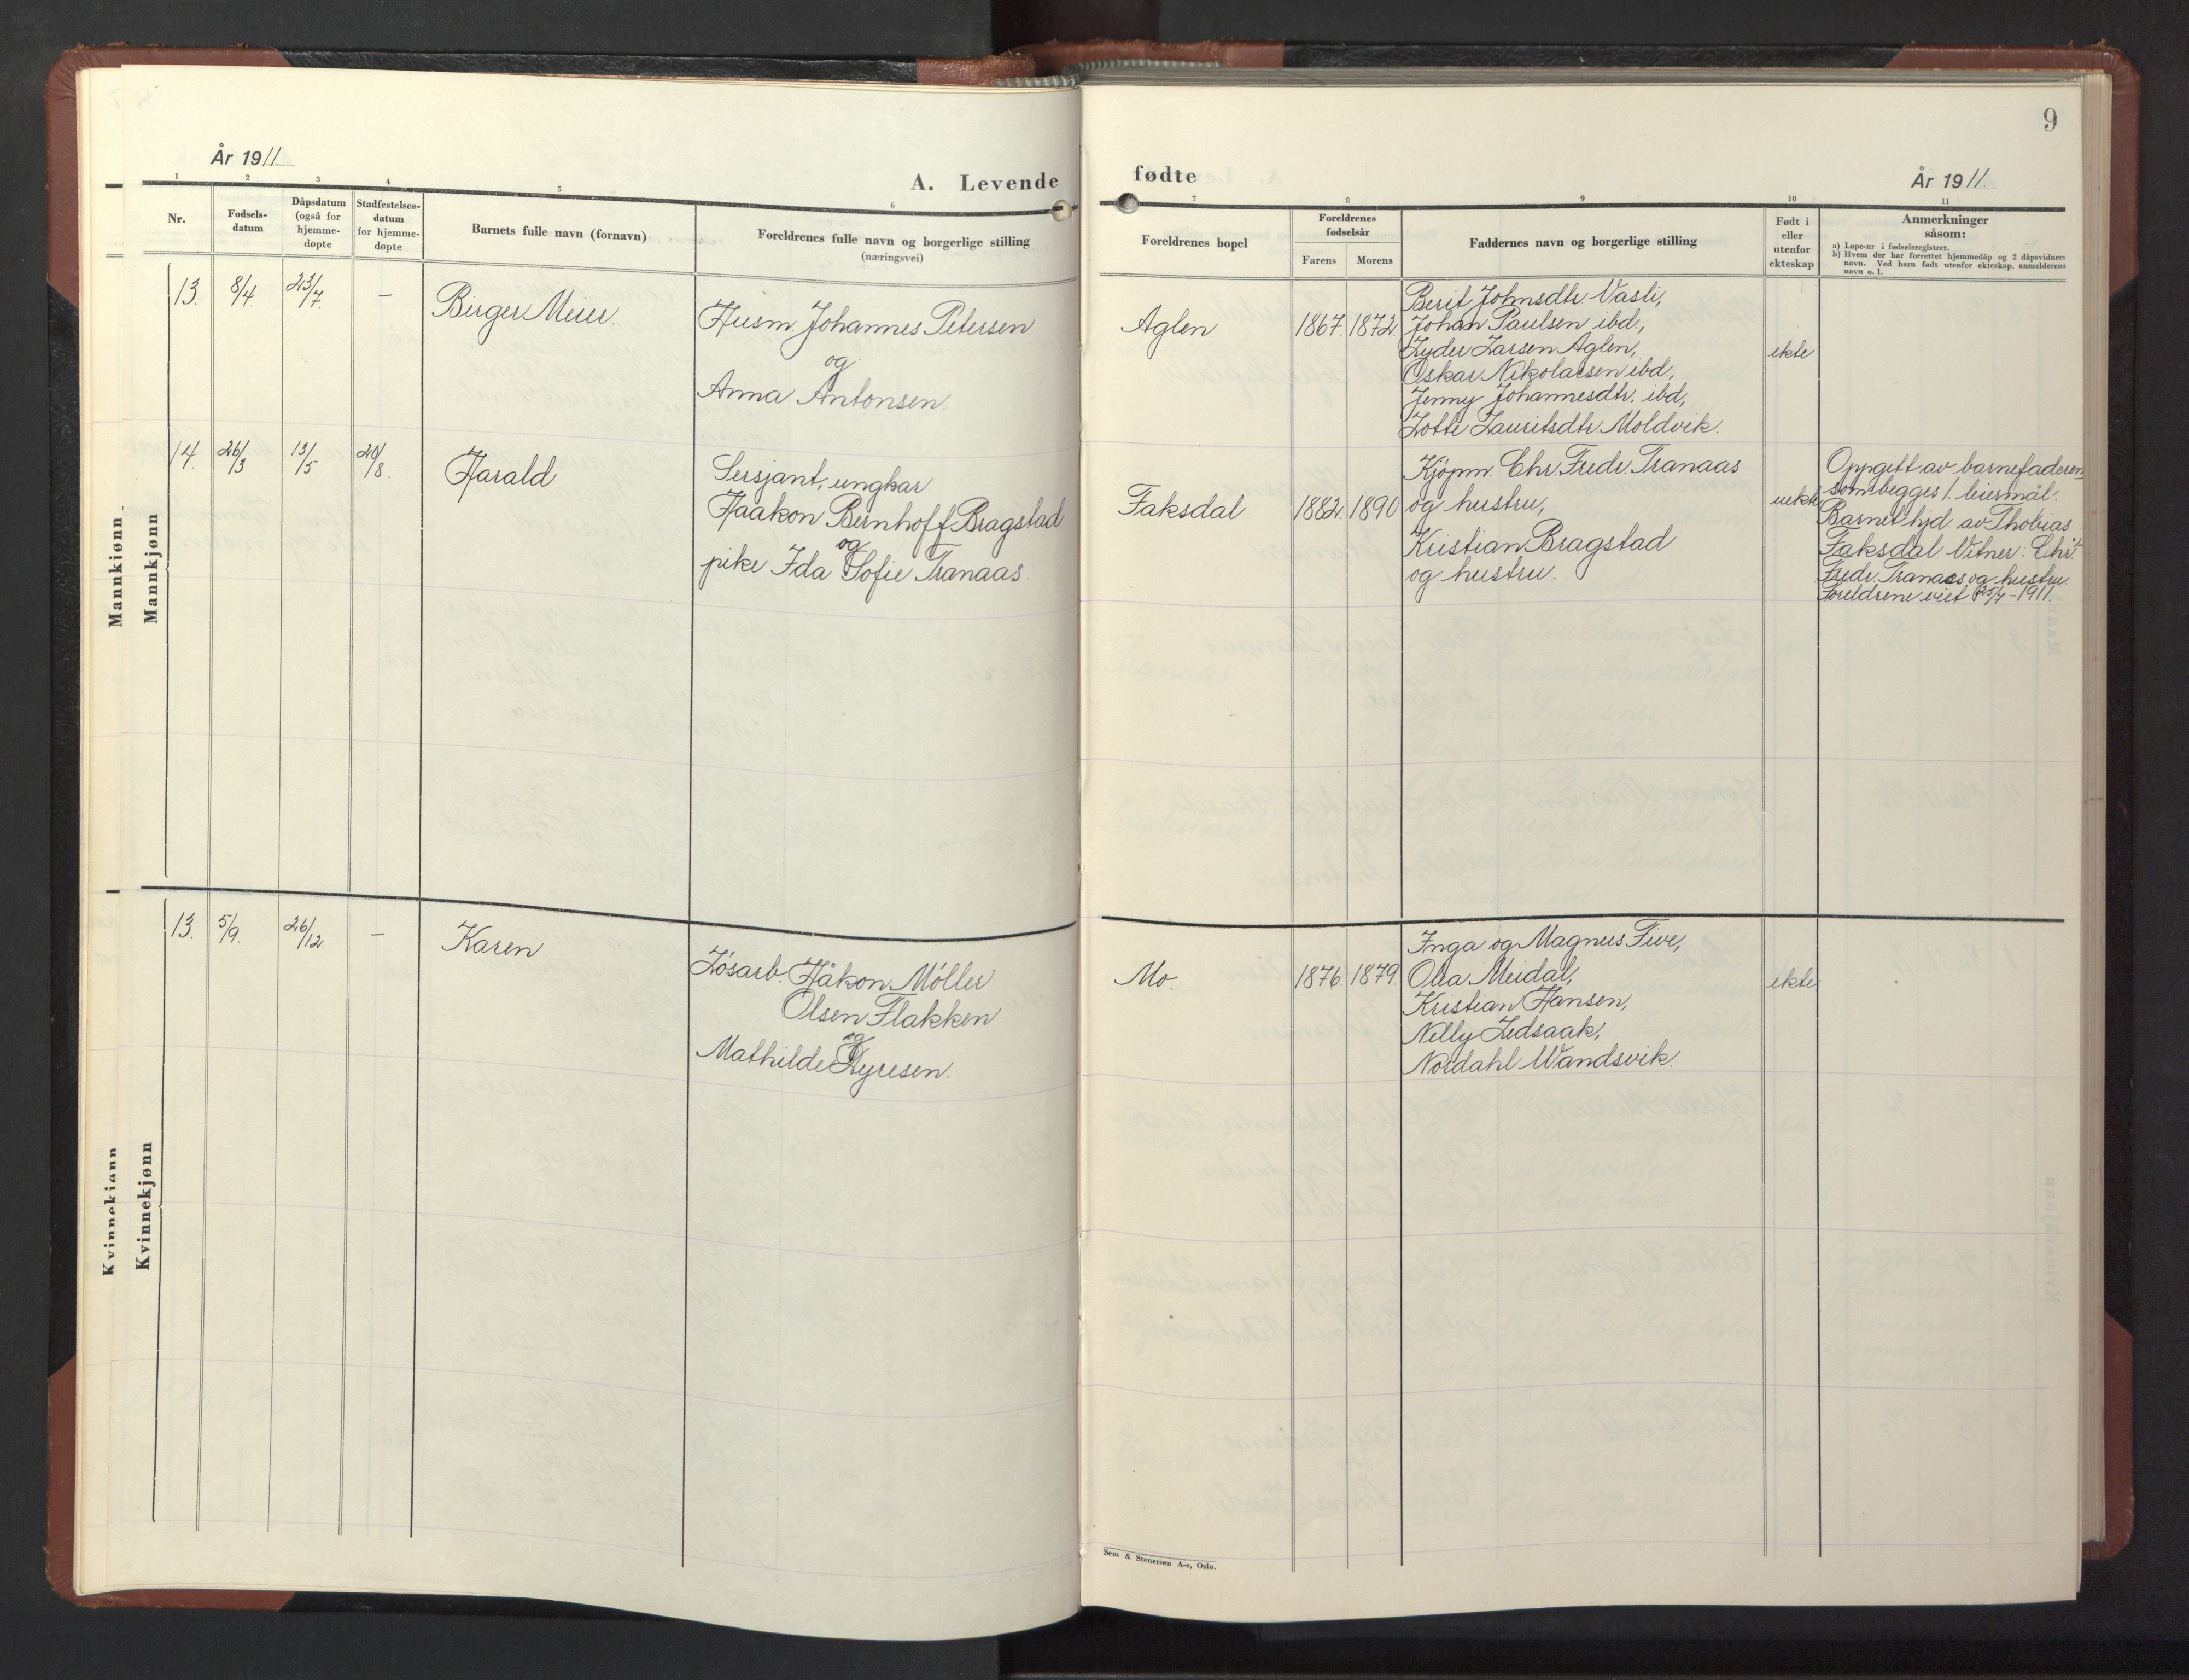 År 1911
A. Levende
1 2 3 4 5 6
Nr.
Fødsels-
datum
Dåpsdatum
(også for
hjemme-
døpte
Stadfestelses-
datum
for hjemme-
døpte
Barnets fulle navn (fornavn)
Foreldrenes fulle navn og borgerlige stilling
(næringsvei)
Mannkjønn
Mannkjønn
13. 8/4. 23/7. — Birger Meier.
Husm. Johannes Petersen
og
Anna Antonsen.
14. 26/3 13/5 20/8. Harald
Sersjant, ungkar
Haakon Bernhoff Bragstad
og
pike Ida Sofie Tranaas.
Kvinnekjønn
Kvinnekjønn
13. 5/9. 26/12. — Karen
Løsarb. Håkon Møller
Olsen Flakken
og
Mathilde Dyresen.
9
fødte
År 1911.
7 8 9 10 11
Foreldrenes bopel
Foreldrenes
fødselsår
Farens Morens
Faddernes navn og borgerlige stilling
Født i
eller
utenfor
ekteskap
Anmerkninger
såsom:
a) Løpe-nr i fødselsregistret.
b) Hvem der har forrettet hjemmedåp og 2 dåpsvidners
navn. Ved barn født utenfor ekteskap, anmelderens
navn o. l.
Aglen. 1867. 1872.
Berit Johnsdtr. Vasli,
Johan Paulsen ibd.,
Lyder Larsen Aglen,
Oskar Nikolaisen ibd.,
Jenny Johannesdtr. ibd,
Lotte Lauritsdtr. Moldvik.
ekte
Faksdal 1882. 1890
Kjøpm. Chr. Fredr. Tranaas
og hustru,
Kristian Bragstad
og hustru.
uekte
Oppgitt av barnefaderen
som begges 1. leiermål.
Barnet hjd. av Thobias
Faksdal. Vitner: Chr.
Fredr. Tranaas og hustru.
Foreldrene viet 25/7-1911.
Mo. 1876. 1879.
Inga og Magnus Five,
Olea Meidal,
Kristian Hansen,
Nelly Ledsaak,
Nordahl Wandsvik.
ekte
Sem & Stenersen A-s, Oslo.